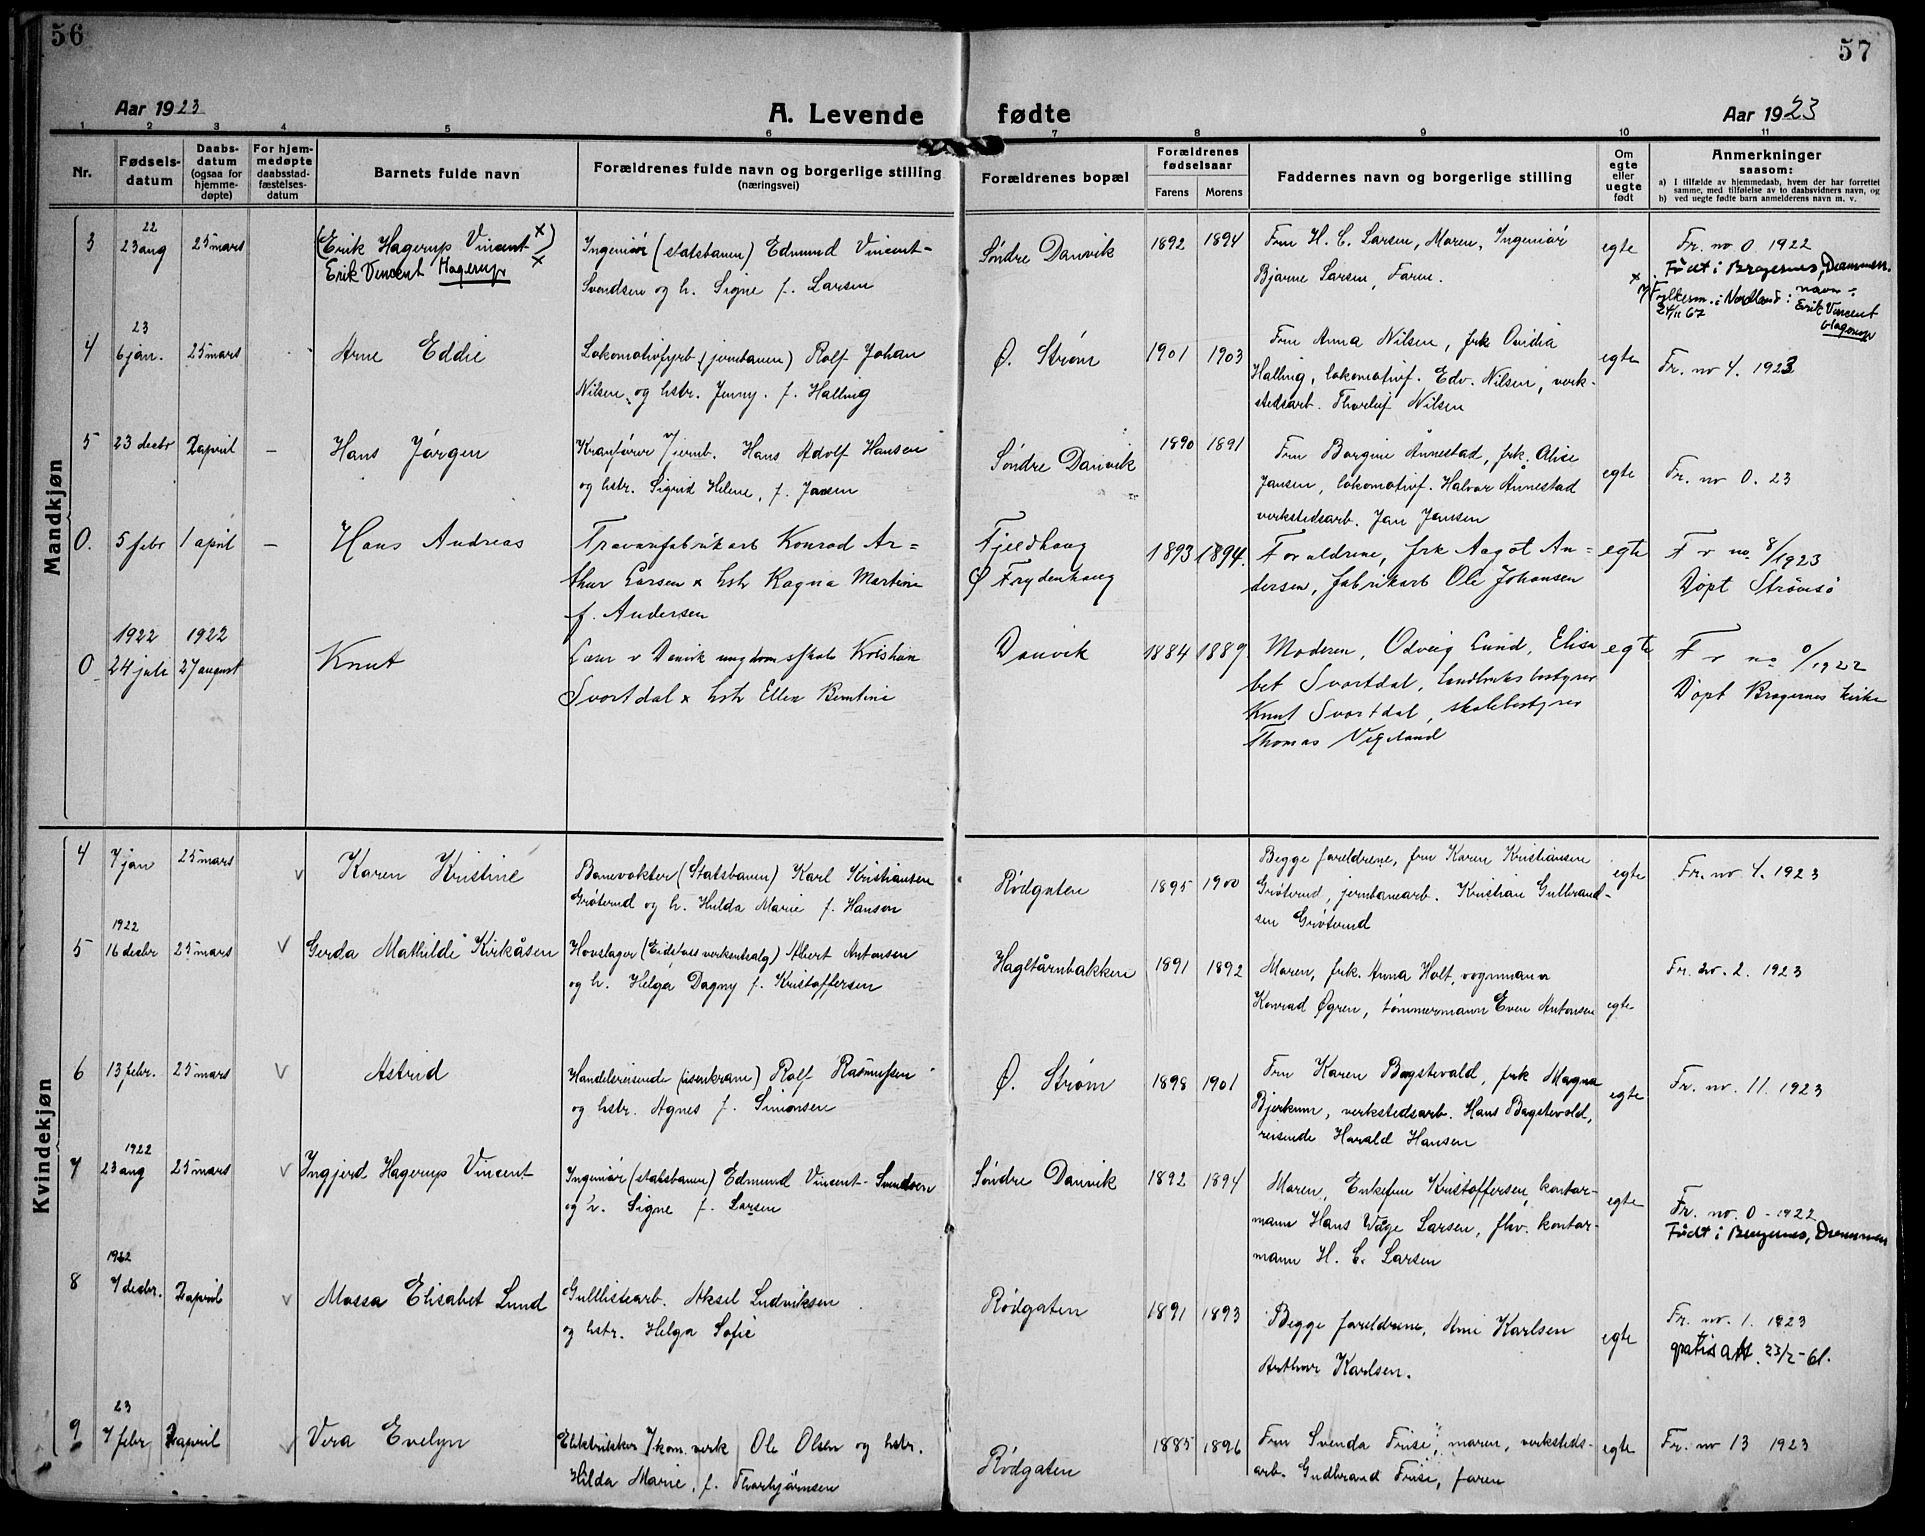 56
57
Aar 1923
A. Levende
fødte
Aar 1923
1 2 3 4 5 6 7 8 9 10 11
Nr.
Fødsels-
datum
Daabs-
datum
(ogsaa for
hjemme-
døpte)
For hjem-
medøpte
daabsstad-
fæstelses-
datum
Barnets fulde navn
Forældrenes fulde navn og borgerlige stilling
(næringsvei)
Forældrenes bopæl
Forældrenes
fødselsaar
Farens Morens
Faddernes navn og borgerlige stilling
Om
egte
eller
uegte
født
Anmerkninger
saasom:
a) I tilfælde av hjemmedaab, hvem der har forrettet
samme, med tilføielse av to daabsvidners navn, og
b) ved uegte fødte barn anmelderens navn m. v.
Mandkjøn
3
22
23 aug
25 mars
(Erik Hagerup Vincent x)
Erik Vincent Hagerup x
Ingeniør (statsbanen) Edmund Vincent-
Svendsen og h. Signe f. Larsen
Søndre Danvik
1892 1894
Fru H. C. Larsen, Moren, Ingeniør
Bjarne Larsen, Faren.
egte
Fr. no 0 1922
Født i Bragernes, Drammen.
x Fylkesm. i Nordland: navn:
24/11 67 Erik Vincent
Hagerup
4
23
6 jan.
25 mars
Arne Eddie
Lokomotivfyrb. (jernbanen) Rolf Johan
Nilsen og hstr. Jenny. f. Halling
Ø. Strøm
1901 1903
Fru Anna Nilsen, frk Ovidia
Halling, lokomotivf. Edv. Nilsen, verk-
stedsarb. Thorleif Nilsen
egte
Fr. no 4. 1923
5
23 decbr
2 april
-
Hans Jørgen
Kranfører v/jernb. Hans Adolf Hansen
og hstr. Sigrid Helene, f. Jansen
Søndre Danvik
1890 1891
Fru Borgine Ånnestad, frk. Alice
Jansen, lokomotivf. Halvor Ånnestad
verkstedsarb. Jan Jansen
egte
Fr. no 0. 23
0.
5 febr
1 april
-
Hans Andreas
Travarefabrikarb Konrad Ar=
thur Larsen x hstr Ragna Martine
f. Andersen
Fjeldhaug
Ø Frydenhaug
1893 1894.
Foraldrene, frk Aagot An=
dersen, fabrikarb Ole Johansen
egte
Fr no. 8/1923
Døpt Strømsø
0
1922
24 juli
1922
27 august
Knut
Lærer v Danvik ungdomsskole Kristian
Svortdal x hstr Ellen Bentine
Danvik
1884 1889
Moderen, Odveig Lund, Elisa
bet Svortdal, landbruksbestyrer
Knut Svortdal, skolebestyrer
Thomas Vigeland
egte
Fr no 0/1922
Døpt Bragernes kirke
Kvindekjøn
4
7 jan
25 mars
v
Karen Kristine
Banevokter (Statsbanen) Karl Kristiansen
Grøterud og h. Hulda Marie f. Hanson
Rødgaten
1895 1900
Begge foreldrene, fru Karen Kristiansen
Grøterud, jernbanearb. Kristian Gulbrand-
sen Grøterud
egte
Fr. no. 4. 1923
5
1922
16 decbr
25 mars
v
Gerda Mathilde Kirkåsen
Hovslager (Eidsfos verksutsalg) Albert Antonsen
og h. Helga Dagny f. Kristoffersen
Hagltårnbakken
1891 1892
Moren, frk. Anna Holt, vognmann
Konrad Øgren, tømmermann Even Antonsen
egte
Fr. no. 2. 1923
6
13 febr.
25 mars
v
Astrid
Handelsreisende (isenkram) Rolf Rasmussen
og hstr. Agnes f. Simonsen
Ø. Strøm
1898 1901
Fru Karen Bagstevold, frk Magna
Bjerkum, verkstedsarb. Hans Bagstevold,
reisende Harald Hansen
egte
Fr. no. 11. 1923
7
1922
23 aug
25 mars
v
Ingjerd Hagerup Vincent
Ingeniør (statsbanen) Edmund Vincent-Svendsen
og h. Signe f. Larsen
Søndre Danvik
1892 1894
Moren, Enkefru Kristoffersen, kontor-
mann Hans Wåge Larsen, fhv. kontor-
mann H. C. Larsen
egte
Fr. no. 0 - 1922
Født i Bragernes, Drammen
8
1922
7 decbr.
2 april
v
Massa Elisabet Lund
Gullistearb. Aksel Ludviksen
og hstr. Helga Sofie
Rødgaten
1891 1893
Begge foreldrene, Arne Karlsen
Arthur Karlsen.
egte
Fr. no. 1. 1923
gratis att. 23/2-61.
9
23
7 febr
2 april
v
Vera Evelyn
Elektriker v/kom. verk Ole Olsen og hstr.
Hilda Marie, f. Thorbjørnsen
Rødgaten
1885 1896
Fru Svenda Friise, moren, verksteds-
arb. Gudbrand Friise, faren
egte
Fr. no 13 1923